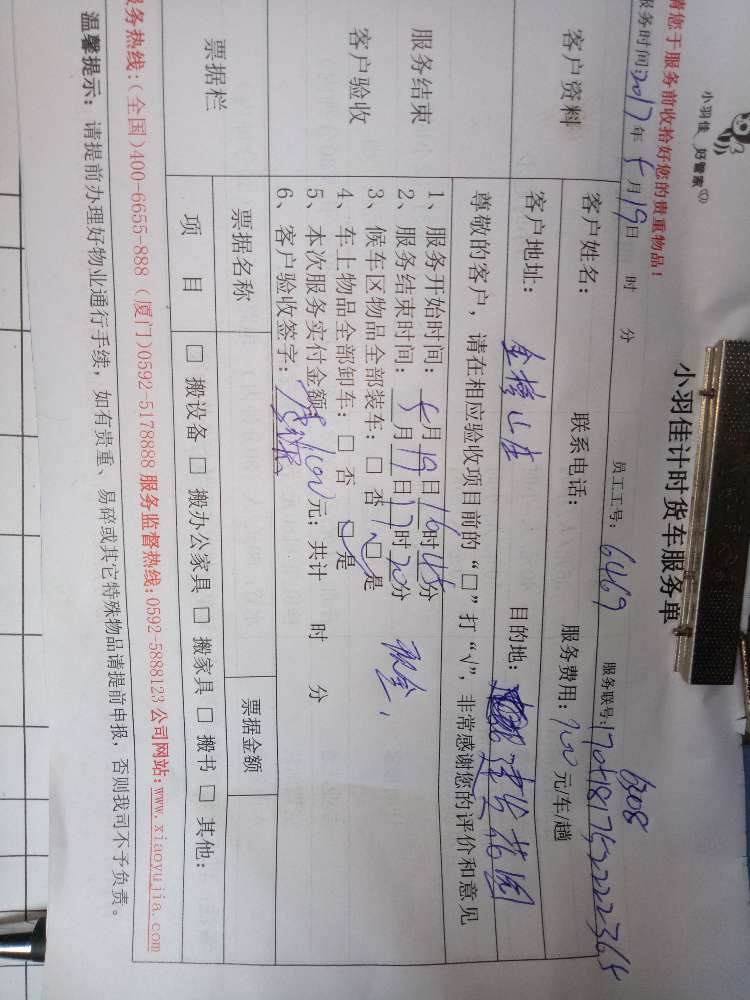 小羽佳 好管家
小羽佳计时货车服务单
请您于服务前收拾好您的贵重物品！
服务时间:2017年5月19日 时 分 员工工号:6469 服务联号:170418175222365
6308
客户资料
客户姓名: 联系电话: 服务费用:100元/车/趟
客户地址: 金榜山庄 目的地:
花园
尊敬的客户，请在相应验收项目前的“□”打“√”，非常感谢您的评价和意见
服务结束
客户验收
1、服务开始时间：5月19日16时45分
2、服务结束时间：5月19日17时20分 现金
3、候车区物品全部装车：□ 否 □ 是
4、车上物品全部卸车：□ 否 □ 是
5、本次服务实付金额100元；共计 时 分
6、客户验收签字：
票据栏
票据名称 票据金额
项 目 □ 搬设备 □ 搬办公家具 □ 搬家具 □ 搬书 □ 其他:
服务热线:(全国)400-6655-888 (厦门)0592-5178888 服务监督热线:0592-5888123 公司网站:www.xiaoyujia.com
温馨提示：请提前办理好物业通行手续，如有贵重、易碎或其它特殊物品请提前申报，否则我司不予负责。